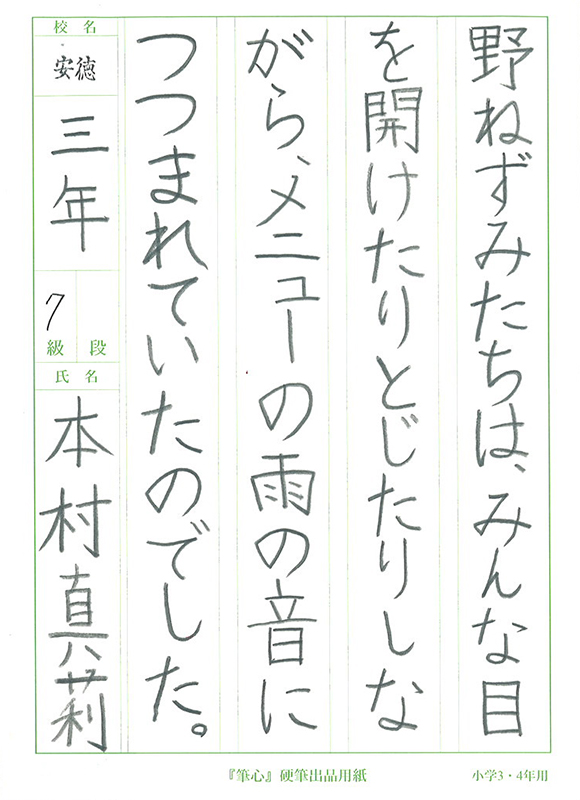 野ねずみたちは、みんな目
を開けたりとじたりしな
がら、メニューの雨の音に
つつまれていたのでした。
校名
安徳
三年
7
級 段
氏名
本村真莉
『筆心』硬筆出品用紙
小学3・4年用